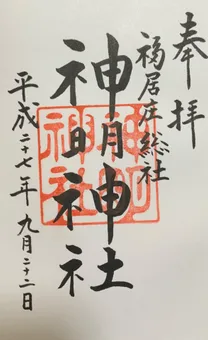 奉拝
福居庄総社
神明神社
神明神社
平成二十七年九月二十二日